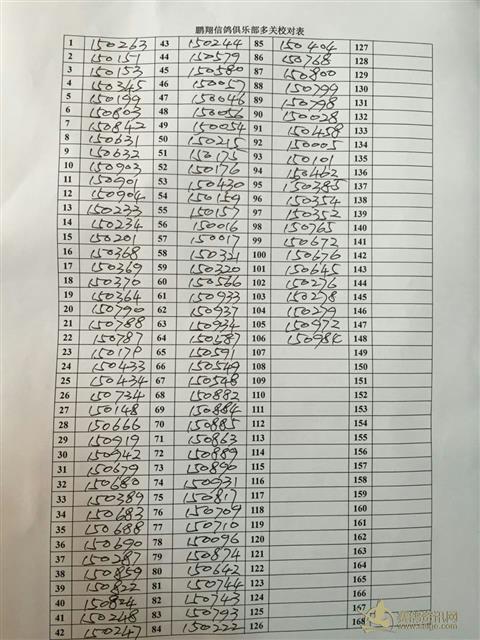 鹏翔信鸽俱乐部多关校对表
1 150263 43 150244 85 150404 127
2 150151 44 150579 86 150768 128
3 150153 45 150580 87 150800 129
4 150345 46 150057 88 150799 130
5 150199 47 150046 89 150798 131
6 150803 48 150056 90 150028 132
7 150842 49 150054 91 150458 133
8 150631 50 150215 92 150005 134
9 150632 51 150175 93 150101 135
10 150903 52 150176 94 150462 136
11 150901 53 150430 95 150385 137
12 150904 54 150159 96 150354 138
13 150233 55 150157 97 150352 139
14 150234 56 150016 98 150765 140
15 150201 57 150017 99 150672 141
16 150368 58 150321 100 150676 142
17 150369 59 150320 101 150645 143
18 150370 60 150566 102 150276 144
19 150364 61 150933 103 150278 145
20 150790 62 150937 104 150279 146
21 150788 63 150934 105 150972 147
22 150787 64 150587 106 148
23 65 150591 107 149
24 150433 66 150549 108 150
25 150434 67 150548 109 151
26 150734 68 150882 110 152
27 150148 69 150884 111 153
28 150666 70 150885 112 154
29 150919 71 150863 113 155
30 150942 72 150889 114 156
31 150679 73 150890 115 157
32 150680 74 150931 116 158
33 150389 75 150817 117 159
34 150683 76 150709 118 160
35 150688 77 150710 119 161
36 150690 78 150096 120 162
37 150287 79 150874 121 163
38 150859 80 150642 122 164
39 150822 81 150744 123 165
40 150824 82 150743 124 166
41 150248 83 150793 125 167
42 150247 84 150222 126 168